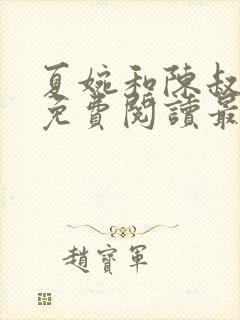 夏婉和陳叔
免費閱讀最
趙寶軍